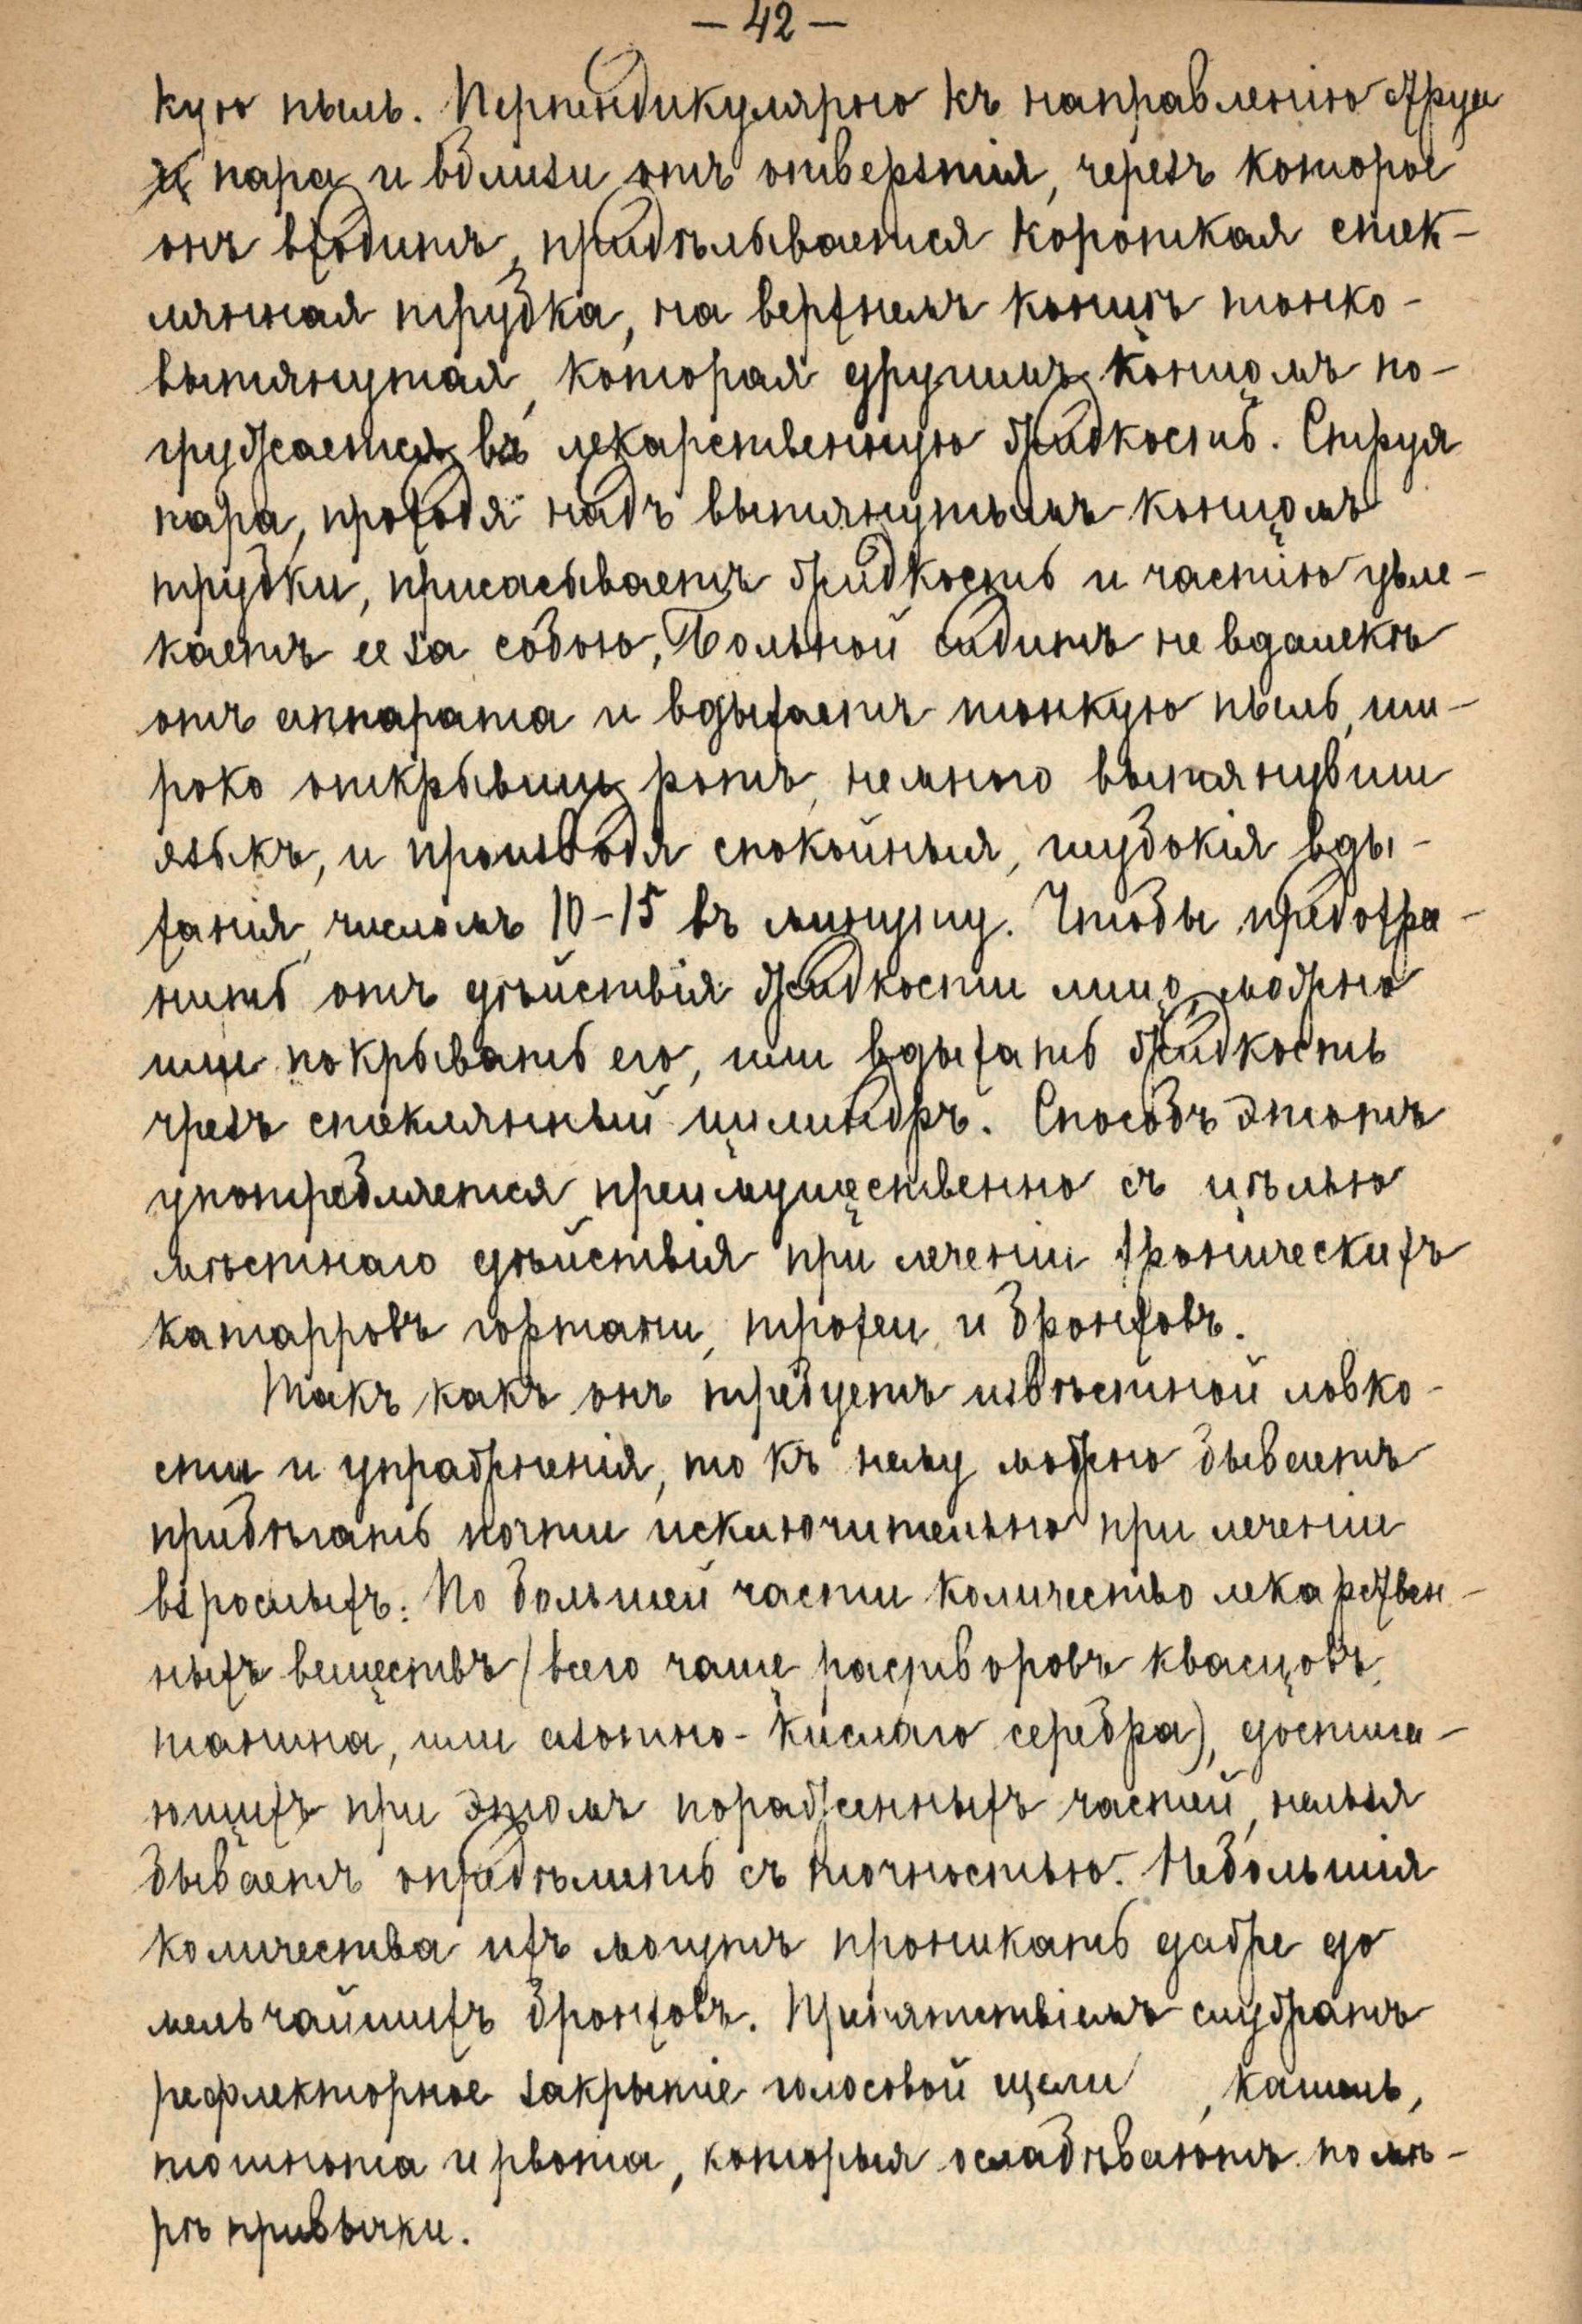 — 42 —
кую пыль. Перпендикулярно къ направленію струи
пара и вблизи отъ отверзтія, черезъ которое
онъ входитъ, придѣлывается короткая стек-
лянная трубка, на верхнемъ концѣ тонко-
вытянутая, которая другимъ концомъ по-
гружается въ лекарственную жидкость. Струя
пара, проходя надъ вытянутымъ концомъ
трубки, присасываетъ жидкость и частію увле-
каетъ ее за собою. Больной сидитъ не вдалекѣ
отъ аппарата и вдыхаетъ тонкую пыль, ши-
роко открывши ротъ, немного вытянувши
языкъ, и производя спокойныя, глубокія вды-
ханія, числомъ 10-15 въ минуту. Чтобы предохра-
нить отъ дѣйствія жидкости лицо, можно
или покрывать его, или вдыхать жидкость
чрезъ стеклянный цилиндръ. Способъ этотъ
употребляется преимущественно съ цѣлью
мѣстнаго дѣйствія при лечении хроническихъ
катарровъ гортани, трохеи и бронховъ.
Такъ какъ онъ требуетъ извѣстной ловко-
сти и упражненія, то къ нему можно бываетъ
прибѣгать почти исключительно при лечении
взрослыхъ. По большей части количество лекарствен-
ныхъ веществъ (всего чаще растворовъ квасцовъ,
танина, или азотно-кислаго серебра), достига-
ющихъ при этомъ пораженныхъ частей, нельзя
бываетъ опредѣлить съ точностью. Небольшія
количества ихъ могутъ проникать даже до
мельчайшихъ бронховъ. Препятствіемъ служатъ
рефлекторное закрытіе голосовой щели , кашель,
тошнота и рвота, которыя ослабѣваютъ по мѣ-
рѣ привычки.